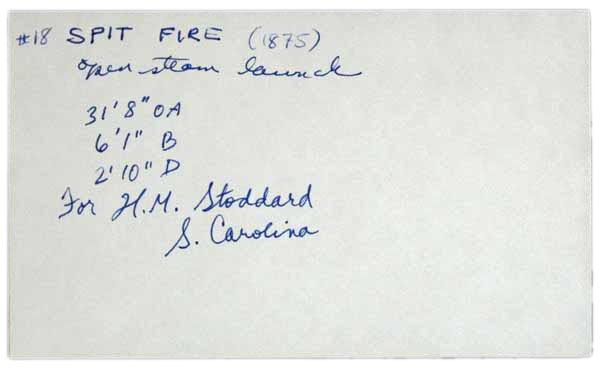 #18 SPIT FIRE (1875)
open steam launch
31'8" OA
6'1" B
2'10" D
For H.M. Stoddard
S. Carolina